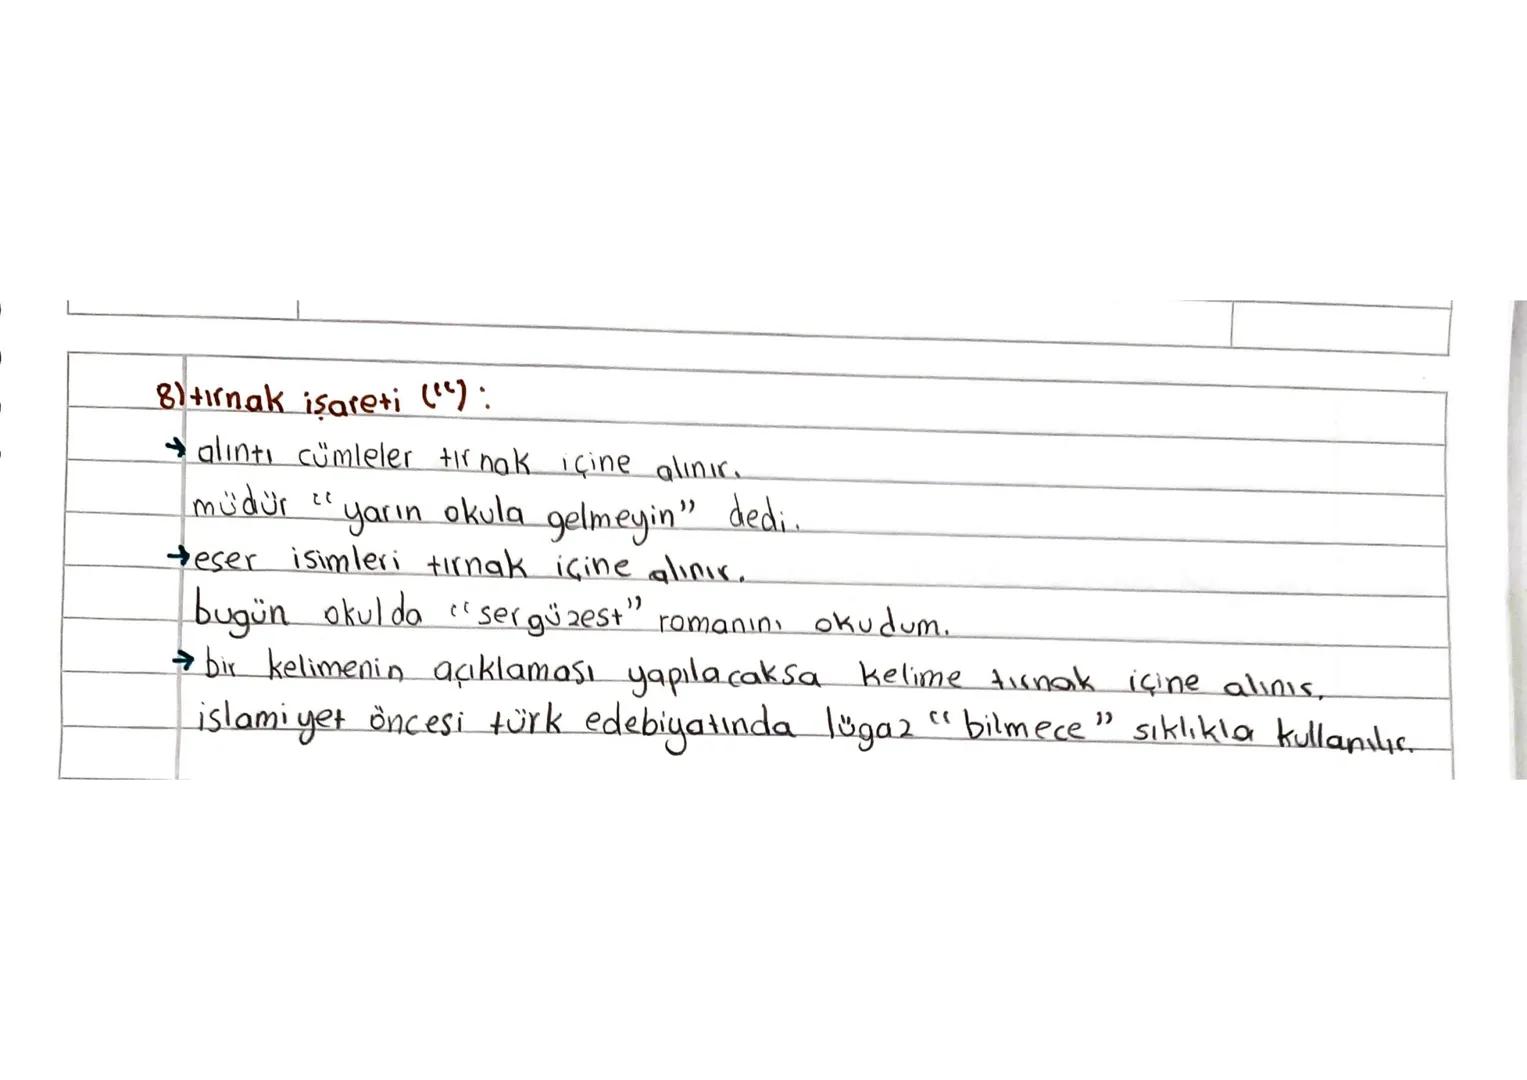 8) tırnak işareti (“”) :
→ alıntı cümleler tırnak içine alınır.
müdür “yarın okula gelmeyin” dedi.
→ eser isimleri tırnak içine alınır.
bugün okulda “sergüzest” romanını okudum.
→ bir kelimenin açıklaması yapılacaksa kelime tırnak içine alınır.
islamiyet öncesi türk edebiyatında lügaz “bilmece” sıklıkla kullanılır.